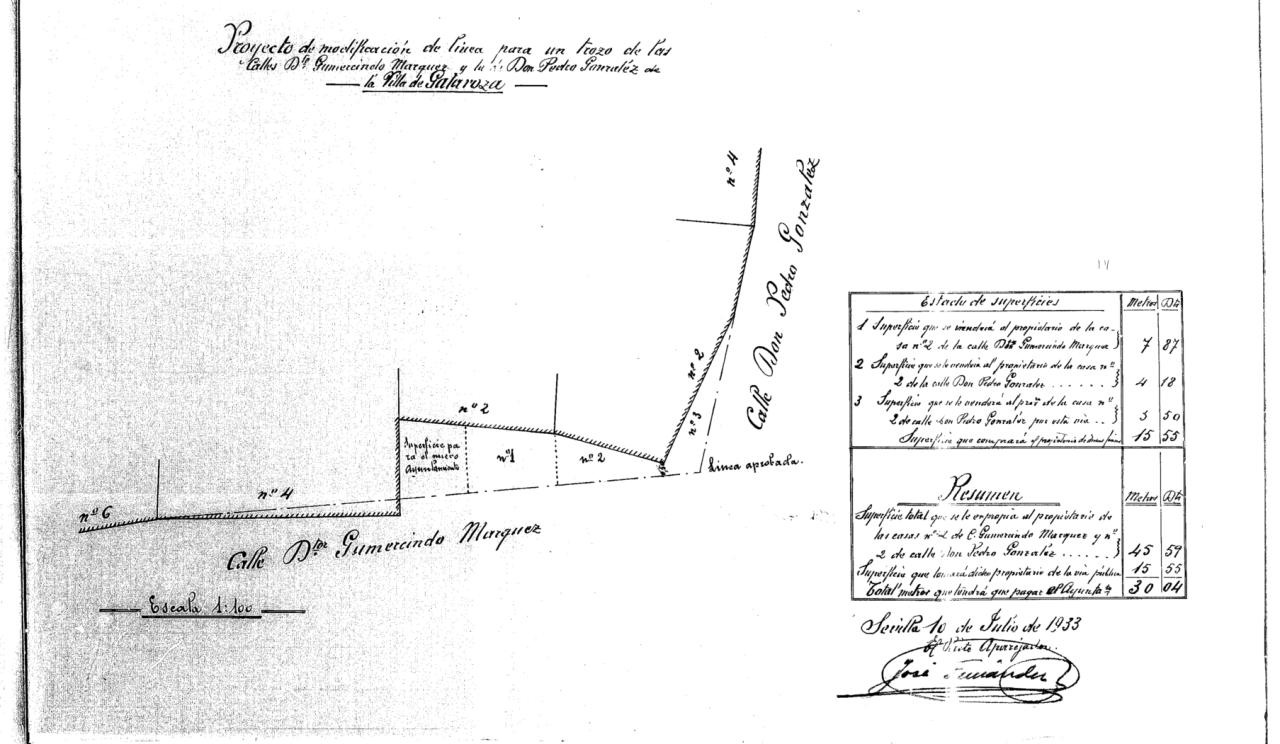 Proyecto de modificación de linea para un trozo de las
Calles Dtor Gumercindo Marquez y la de Don Pedro Gonzaléz de
la Villa de Galaroza
nº 4
Calle Don Pedro Gonzaléz
nº 2
nº 3
nº 2
Superficie pa
ra el nuevo
Ayuntamiento
nº 1
nº 2
Linea aprobada.
nº 4
nº 6
Calle Dtor Gumercindo Marquez
Escala 1:100
14
Estado de superficies Metros Dts
1 Superficie que se venderá al propietario de la ca-
sa nº 2 de la calle Dtor Gumercindo Marquez 7 87
2 Superficie que se le venderá al propietario de la casa nº
2 de la calle Don Pedro Gonzalez ...... 4 18
3 Superficie que se le venderá al prop. de la casa nº
2 de calle Don Pedro Gonzaléz por esta via .. 3 50
Superficie que comprará el propietario de dichas 15 55
Resumen Metros Dts
Superficie total que se le expropia al propietario de
las casas nº 2 de C. Gumercindo Marquez y nº
2 de calle Don Pedro Gonzaléz ...... 45 59
Superficie que tomará dicho propietario de la via pública 15 55
Total metros que tendrá que pagar el Ayuntatº 30 04
Sevilla 10 de Julio de 1933
El Perito Aparejador.
José Fernández